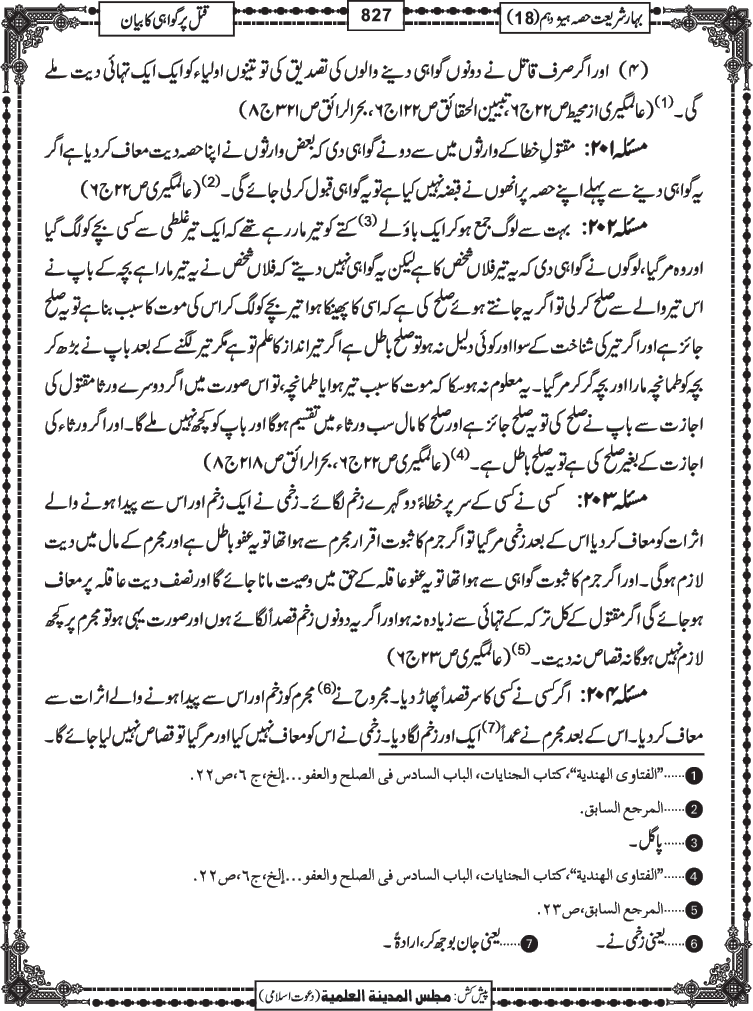 بہار شریعت حصہ ہیژدہم (18)
827
قتل پر گواہی کا بیان
(۴) اور اگر صرف قاتل نے دونوں گواہی دینے والوں کی تصدیق کی تو تینوں اولیاء کو ایک ایک تہائی دیت ملے
گی۔(1) (عالمگیری از محیط ص۲۲ج۶، تبیین الحقائق ص۱۲۲ج۶، بحرالرائق ص۳۲۱ج۸)
مسئلہ ۲۰۱: مقتولِ خطا کے وارثوں میں سے دو نے گواہی دی کہ بعض وارثوں نے اپنا حصہ دیت معاف کر دیا ہے اگر
یہ گواہی دینے سے پہلے اپنے حصہ پر انھوں نے قبضہ نہیں کیا ہے تو یہ گواہی قبول کر لی جائے گی۔(2) (عالمگیری ص۲۲ج۶)
مسئلہ ۲۰۲: بہت سے لوگ جمع ہو کر ایک باؤلے(3) کتے کو تیر مار رہے تھے کہ ایک تیر غلطی سے کسی بچے کو لگ گیا
اور وہ مر گیا، لوگوں نے گواہی دی کہ یہ تیر فلاں شخص کا ہے لیکن یہ گواہی نہیں دیتے کہ فلاں شخص نے یہ تیر مارا ہے بچہ کے باپ نے
اس تیر والے سے صلح کر لی تو اگر یہ جانتے ہوئے صلح کی ہے کہ اسی کا پھینکا ہوا تیر بچے کو لگ کر اس کی موت کا سبب بنا ہے تو یہ صلح
جائز ہے اور اگر تیر کی شناخت کے سوا اور کوئی دلیل نہ ہو تو صلح باطل ہے اگر تیر انداز کا علم تو ہے مگر تیر لگنے کے بعد باپ نے بڑھ کر
بچہ کو طمانچہ مارا اور بچہ گر کر مر گیا۔ یہ معلوم نہ ہو سکا کہ موت کا سبب تیر ہوا یا طمانچہ، تو اس صورت میں اگر دوسرے ورثا مقتول کی
اجازت سے باپ نے صلح کی تو یہ صلح جائز ہے اور صلح کا مال سب ورثاء میں تقسیم ہوگا اور باپ کو کچھ نہیں ملے گا۔ اور اگر ورثاء کی
اجازت کے بغیر صلح کی ہے تو یہ صلح باطل ہے۔(4) (عالمگیری ص۲۲ج۶، بحرالرائق ص۲۱۸ج۸)
مسئلہ ۲۰۳: کسی نے کسی کے سر پر خطاءً دو گہرے زخم لگائے۔ زخمی نے ایک زخم اور اس سے پیدا ہونے والے
اثرات کو معاف کر دیا اس کے بعد زخمی مر گیا تو اگر جرم کا ثبوت اقرار مجرم سے ہوا تھا تو یہ عفو باطل ہے اور مجرم کے مال میں دیت
لازم ہوگی۔ اور اگر جرم کا ثبوت گواہی سے ہوا تھا تو یہ عفو عاقلہ کے حق میں وصیت مانا جائے گا اور نصف دیت عاقلہ پر معاف
ہو جائے گی اگر مقتول کے کل ترکہ کے تہائی سے زیادہ نہ ہو اور اگر یہ دونوں زخم قصداً لگائے ہوں اور صورت یہی ہو تو مجرم پر کچھ
لازم نہیں ہوگا نہ قصاص نہ دیت۔(5) (عالمگیری ص۲۳ج۶)
مسئلہ ۲۰۴: اگر کسی نے کسی کا سر قصداً پھاڑ دیا۔ مجروح نے(6) مجرم کو زخم اور اس سے پیدا ہونے والے اثرات سے
معاف کر دیا۔ اس کے بعد مجرم نے عمداً(7) ایک اور زخم لگا دیا۔ زخمی نے اس کو معاف نہیں کیا اور مر گیا تو قصاص نہیں لیا جائے گا۔
1......"الفتاوی الھندیة"، کتاب الجنایات، الباب السادس فی الصلح والعفو...إلخ، ج ۶، ص۲۲.
2......المرجع السابق.
3......پاگل۔
4......"الفتاوی الھندیة"، کتاب الجنایات، الباب السادس فی الصلح والعفو...إلخ، ج۶، ص۲۲.
5......المرجع السابق، ص۲۳.
6......یعنی زخمی نے۔ 7......یعنی جان بوجھ کر، ارادۃً۔
پیش کش: مجلس المدينة العلمية (دعوت اسلامی)